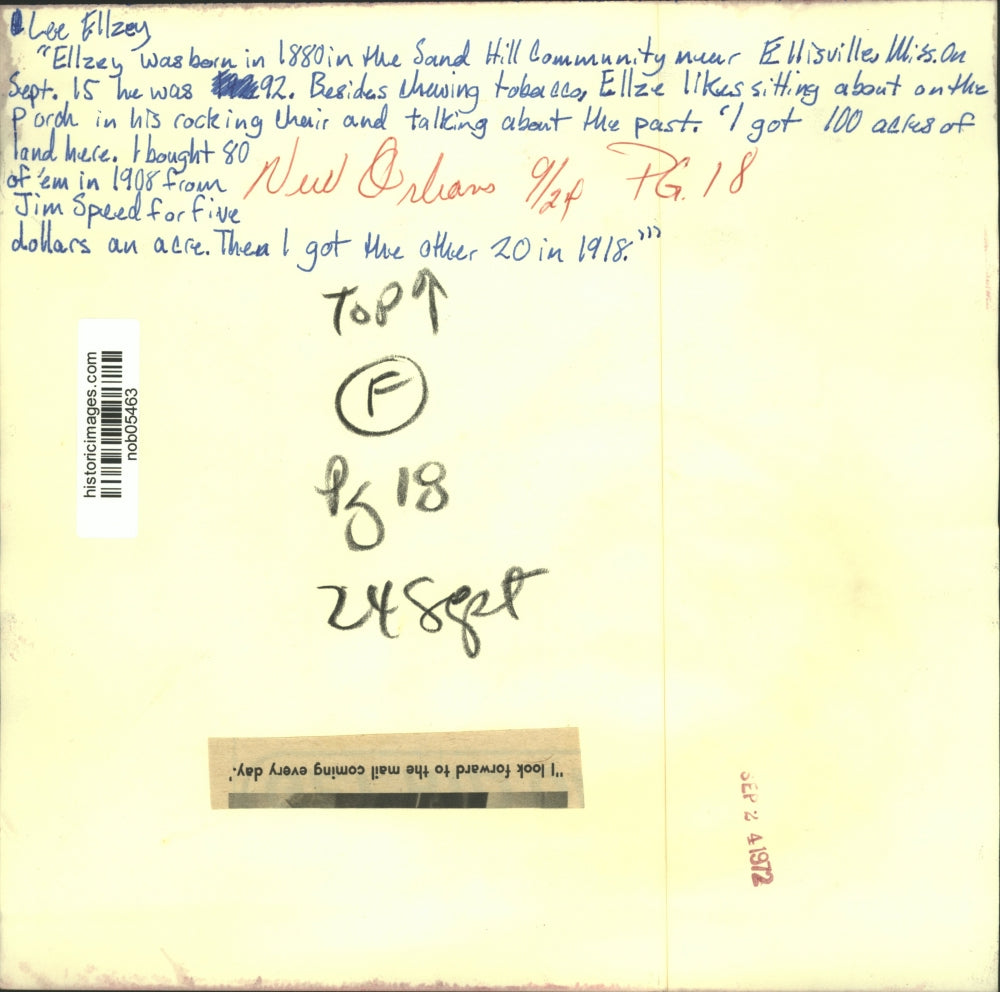 Lee Ellzey
"Ellzey was born in 1880 in the Sand Hill Community near Ellisville, Miss. On
Sept. 15 he was 92. Besides chewing tobacco, Ellze likes sitting about on the
porch in his rocking chair and talking about the past. 'I got 100 acres of
land here. I bought 80
of 'em in 1908 from
Jim Speed for five
dollars an acre. Then I got the other 20 in 1918.'"
New Orleans 9/24 PG. 18
TOP ↑
F
Pg 18
24 Sept
historicimages.com
nob05463
"I look forward to the mail coming every day.'
SEP 24 1972